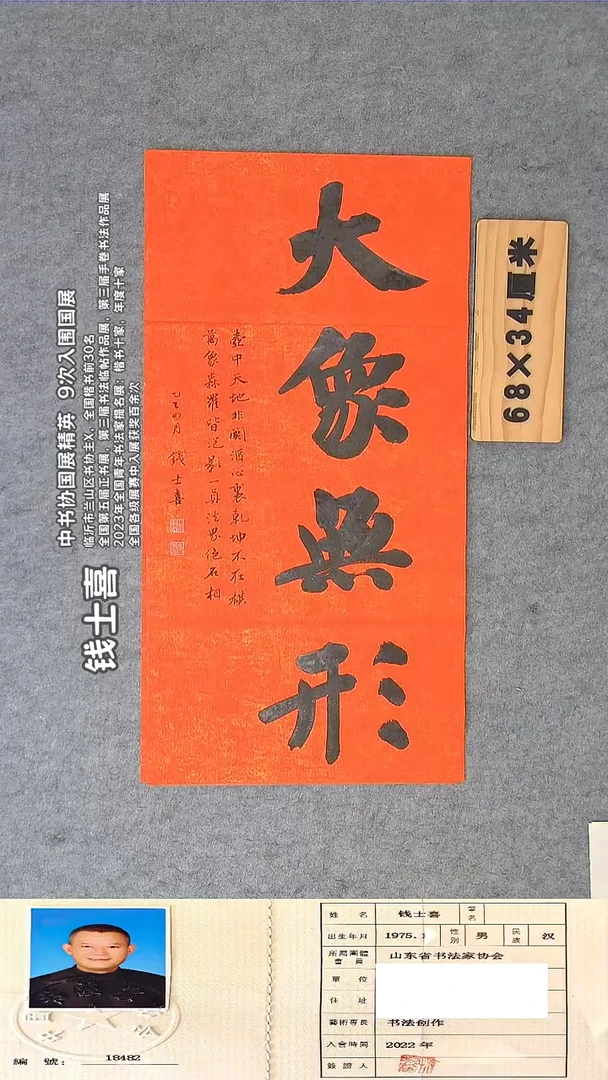 大象無形
壺中天地非關酒心裏乾坤不在棋
萬象森羅皆泡影一真法界絕名相
乙巳四月 钱士喜
68×34厘米
钱士喜
中书协国展精英 9次入围国展
临沂市兰山区书协主X，全国楷书前30名
全国第五届正书展，第三届书法临帖作品展，第三届手卷书法作品展
2023年全国青年书法家提名展：楷书十家，年度十家
全国各级展赛中入展获奖百余次
編 號： 18482
姓 名 钱士喜 筆名
出生年月 1975.1 性別 男 民族 汉
所屬團體會員 山东省书法家协会
單 位
住 址
藝術專長 书法创作
入會時間 2022 年
簽證人